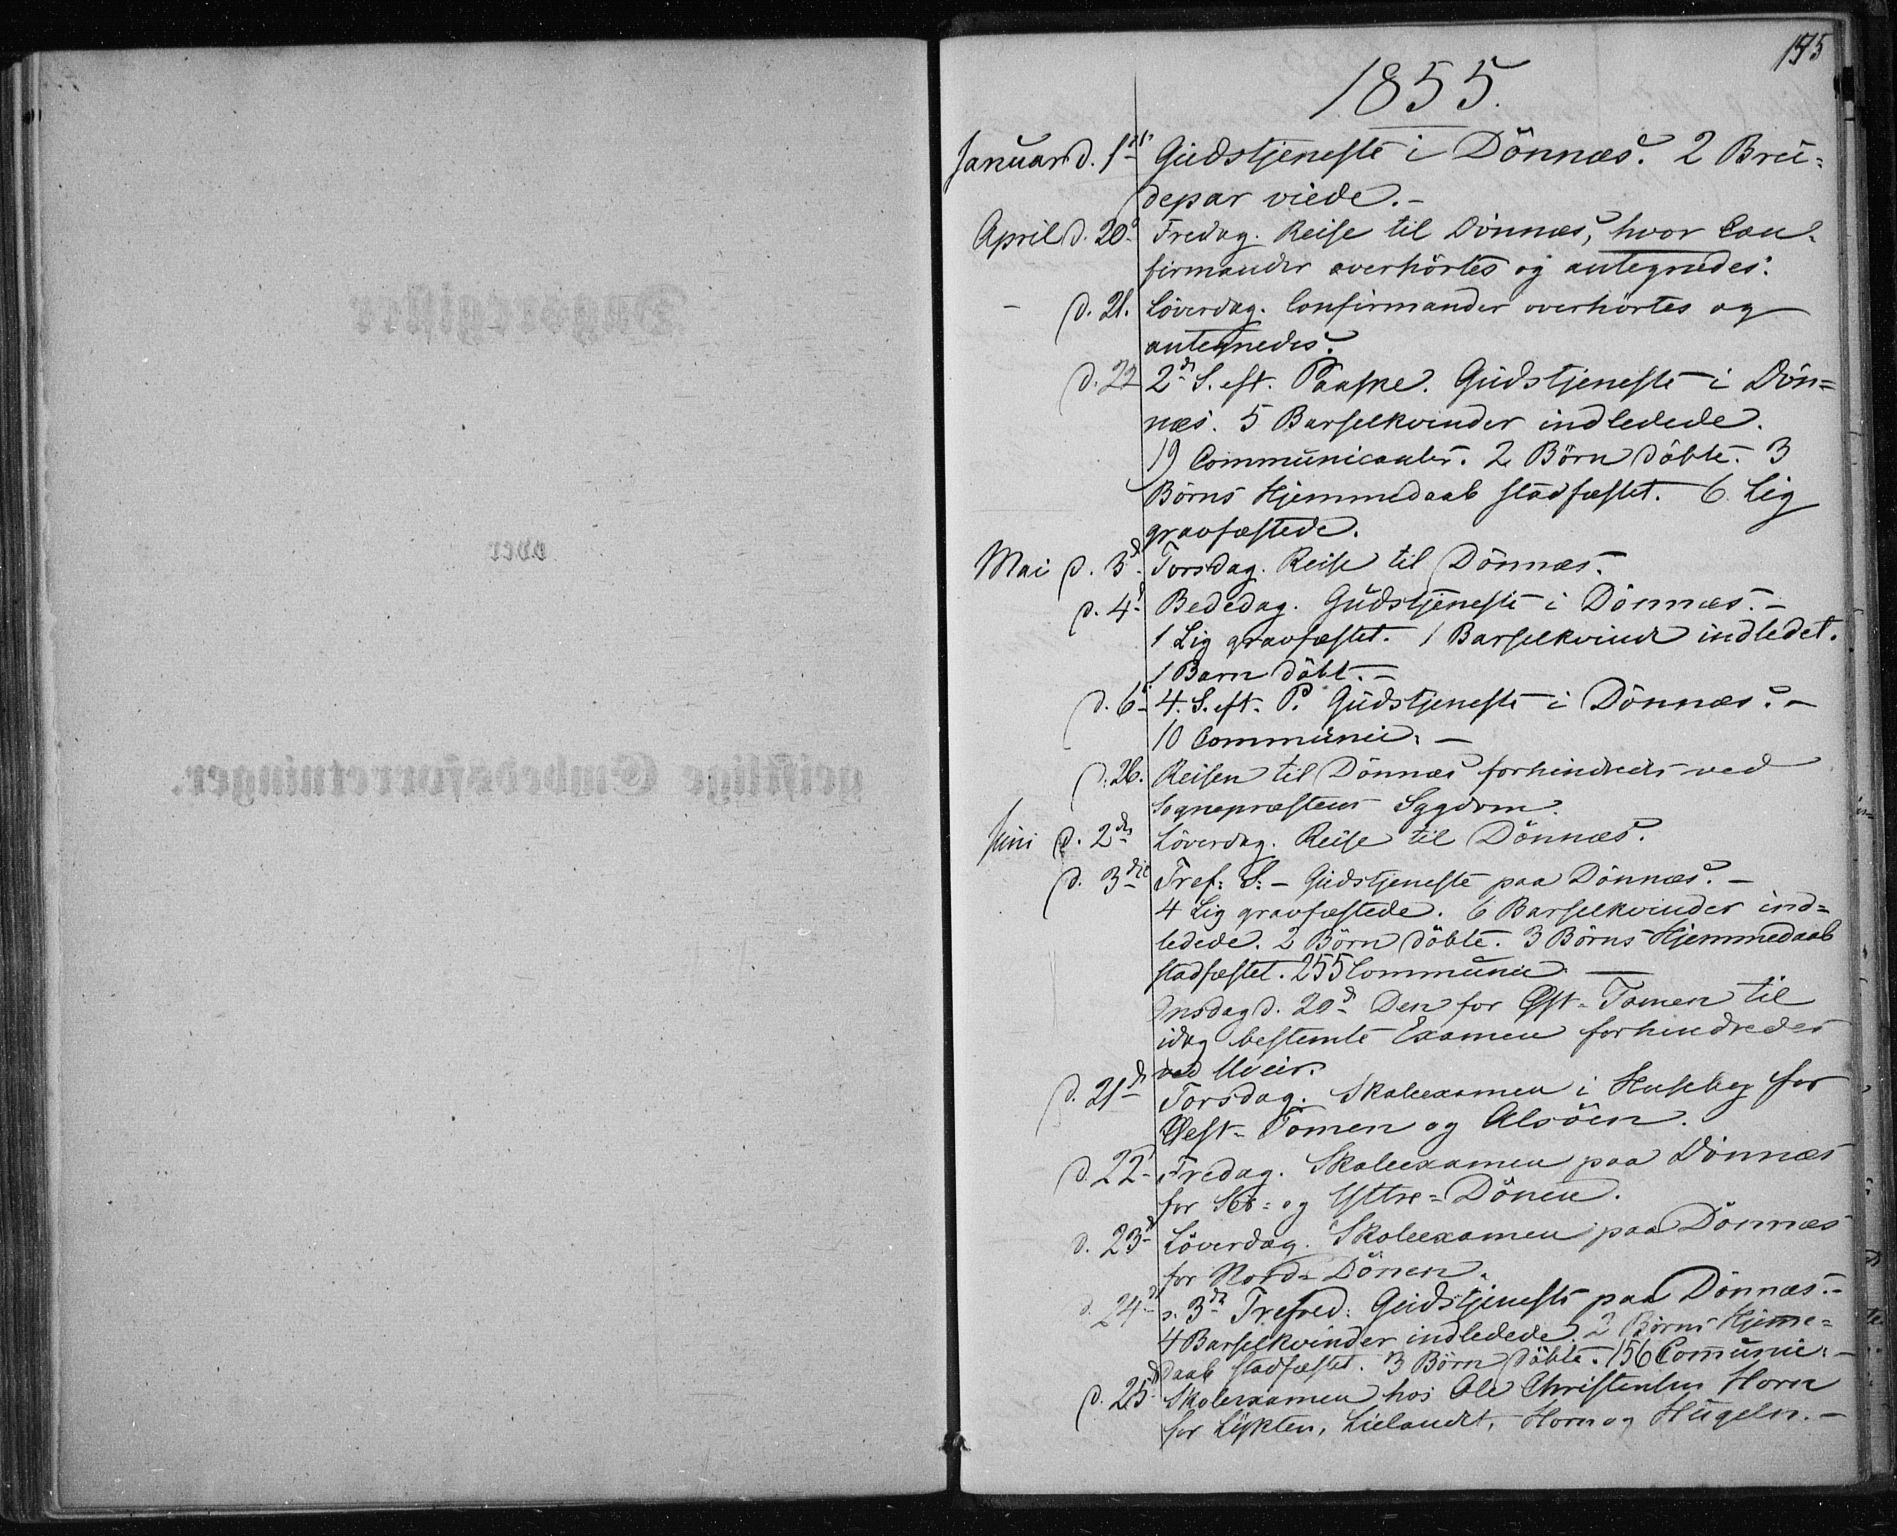 155
1855.
Januar d. 1ste Gudstjeneste i Dönnæs. 2 Bru=
depar viede. -
April d. 20de Fredag. Reise til Dönnæs, hvor Con-
firmander overhörtes og antegnedes.
- d. 21. Löverdag. Confirmander overhörtes og
antegnedes.
d. 22 2den S. eft. Paaske. Gudstjeneste i Dön=
næs. 5 Barselkvinder indledede.
19 Communicanter. 2 Börn döbte. 3
Börns Hjemmedaab stadfæstet. 6 Lig
gravfæstede.
Mai d. 3d Torsdag. Reise til Dönnæs.
d. 4d Bededag. Gudstjeneste i Dönnæs. -
1 Lig gravfæstet. 1 Barselkvinde indledet.
1 Barn döbt. -
d. 6d 4. S. eft. P. Gudstjeneste i Dönnæs. -
10 Communic. -
d. 26. Reisen til Dönnæs forhindredes ved
Sognepræstens Sygdom.
Juni d. 2den Löverdag. Reise til Dönnæs.
d. 3die Tref: S: - Gudstjeneste paa Dönnæs. -
4 Lig gravfæstede. 6 Barselkvinder ind=
ledede. 2 Börn döbte. 3 Börns Hjemmedaab
stadfæstet. 255 Communic. -
Onsdag d. 20d Den for Øst-Tomen til
idag bestemte Examen forhindredes
ved Uveir.
d. 21d Torsdag. Skoleexamen i Huseby for
Øest-Tomen og Alsöen.
d. 22d Fredag. Skoleexamen paa Dönnæs
for Sör= og Yttre=Dönen.
d. 23d Löverdag. Skoleexamen paa Dönnæs
for Nord=Dönen.
d. 24d s. 3die Trefred: Gudstjeneste paa Dönnæs. -
4 Barselkvinder indledede. 2 Börns Hjeme=
daab stadfæstet. 3 Börn döbte. 156 Comunic: -
d. 25d Skoleexamen hos Ole Christensen Horn
for Hugeln. -
Dagsregister
over
geistlige Embedsforretninger.